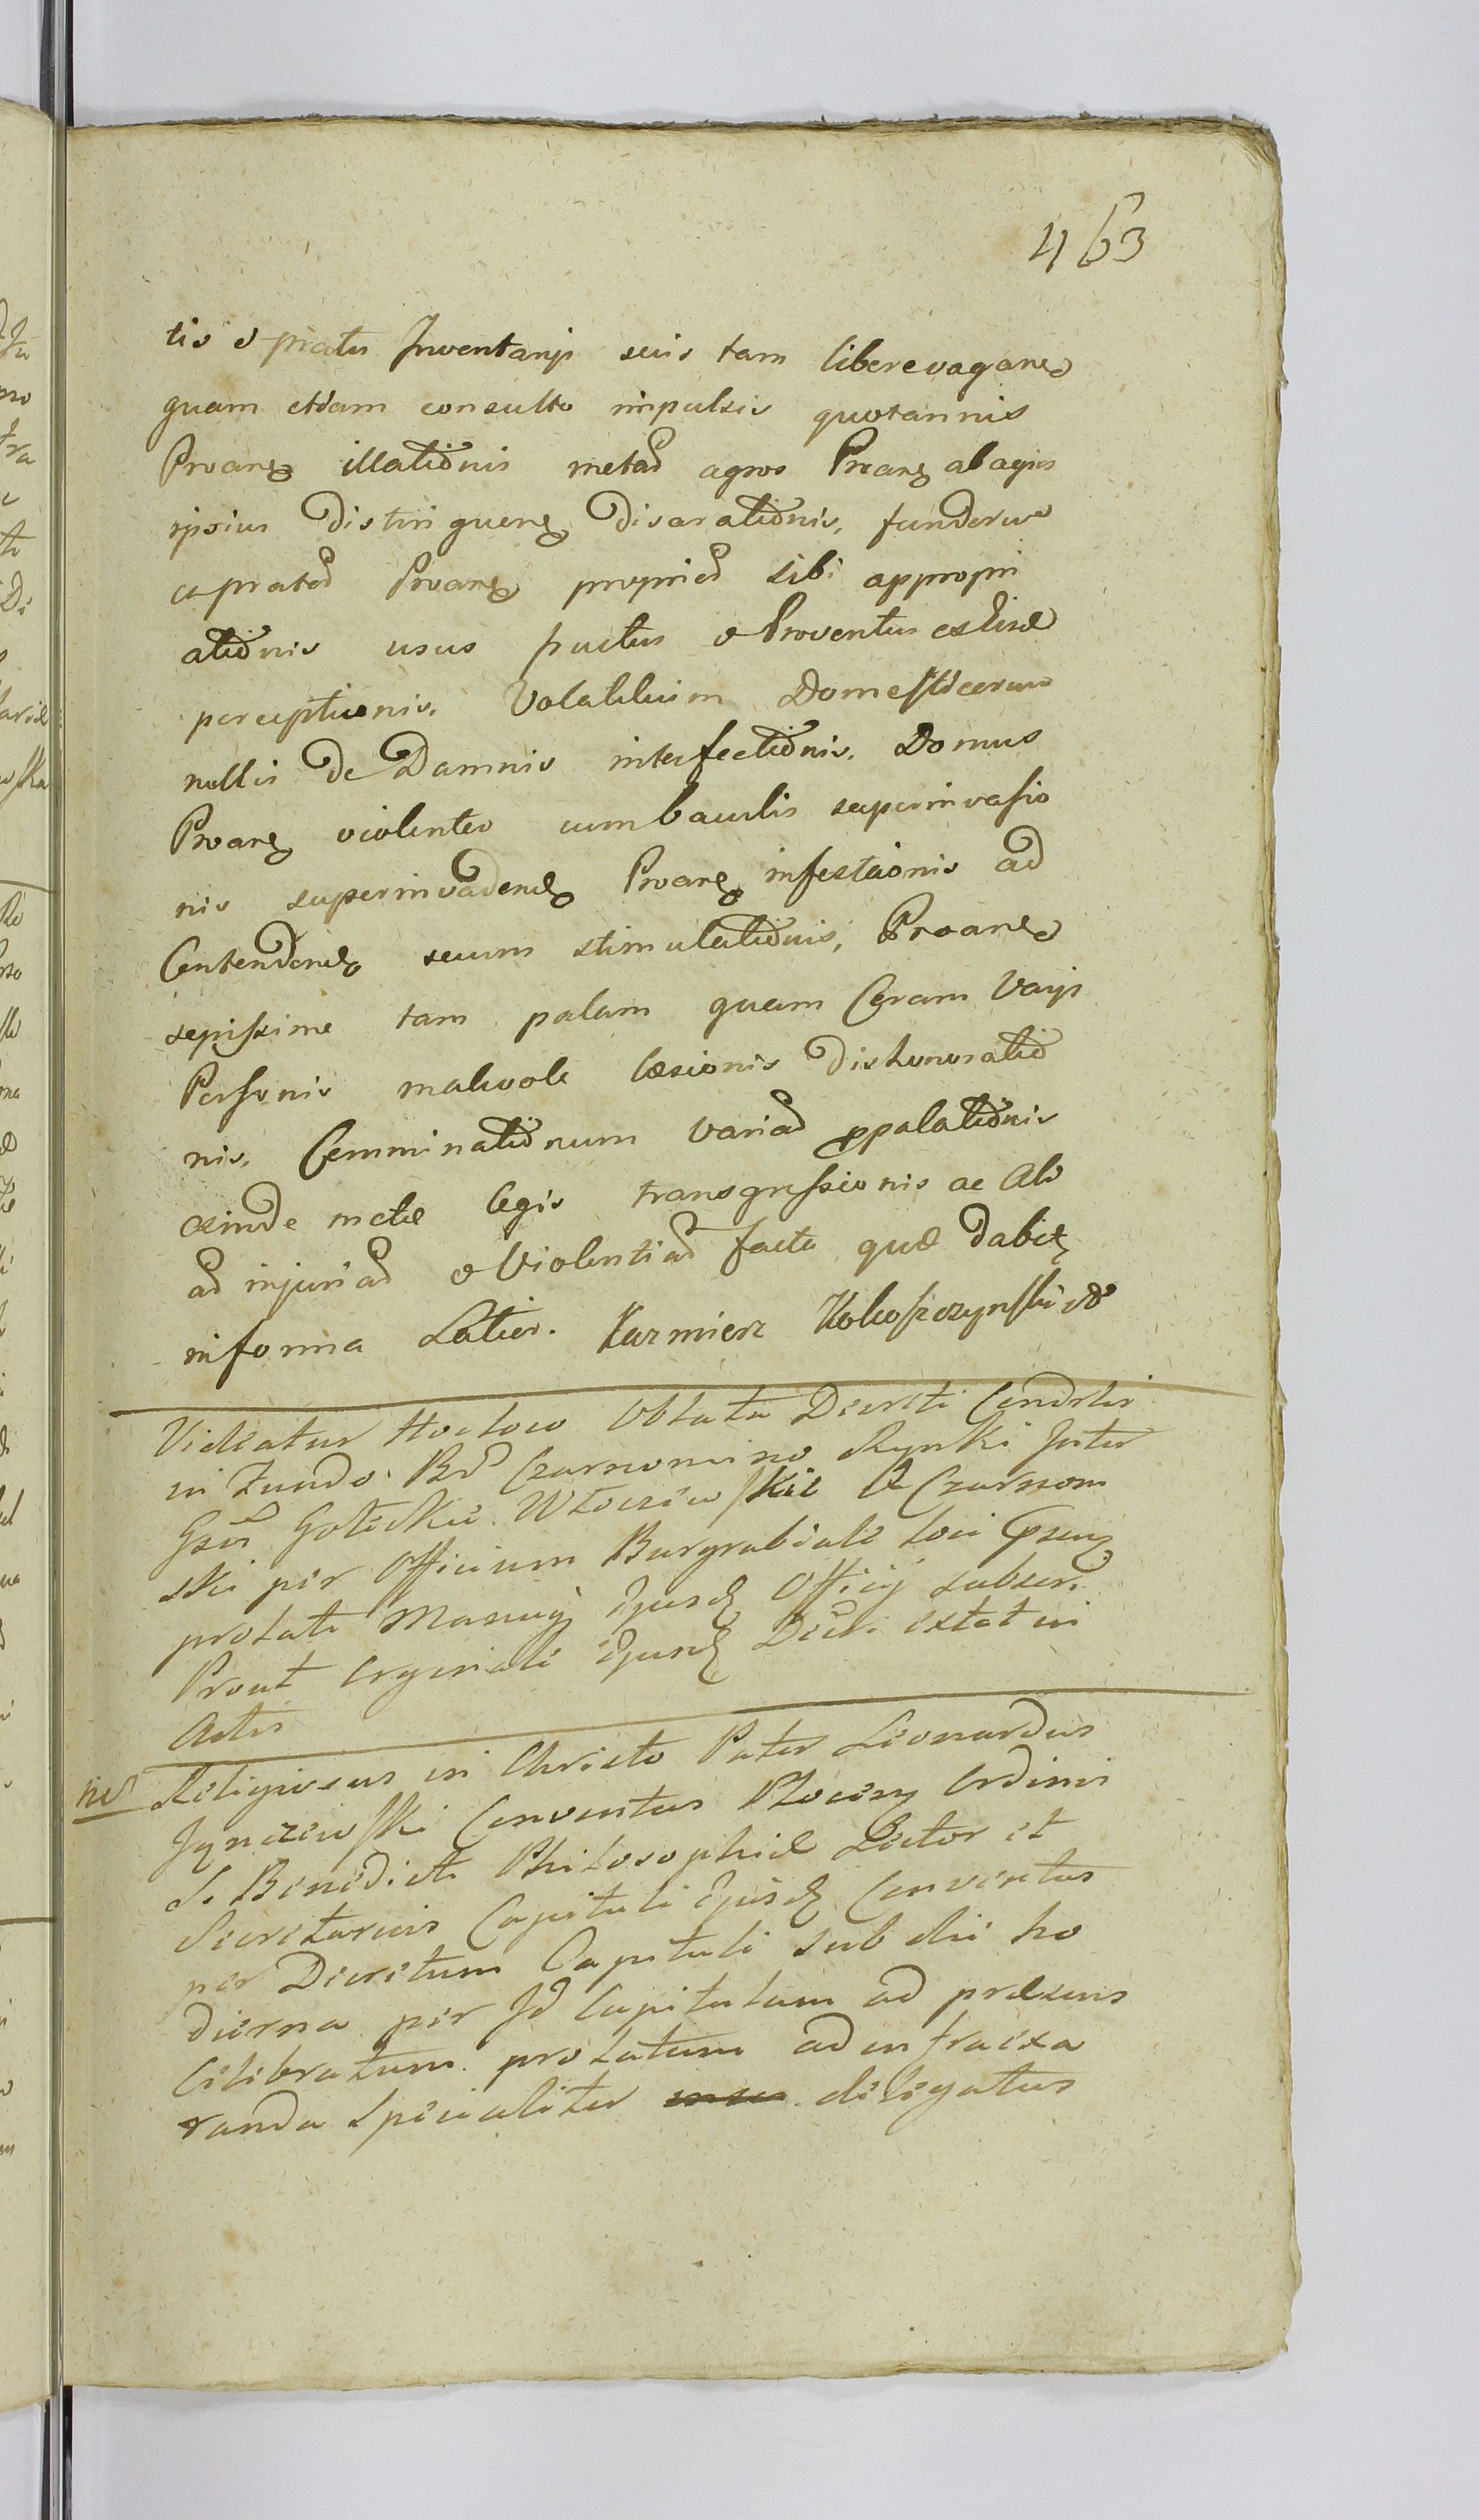 463
tis & pratis Inventarijs suis tam libere vagan
quam etiam consulto impulsis quotannis
Proan illationis metas agros Proan ab agris
ipsius distinguen disarationis, fundorum
et prator Proan propried sibi appropri
ationis usus fructus & Proventus ex eisd
perceptionis, Volatilium Domesticorum
nullis de Damnis interfectionis, Domus
Proan violenter cum baculis superinvasio
nis superinvadend Proan infestationis ad
Contendend secum stimulationis, Proan
sepissime tam palam quam Coram Varijs
Personis malevole læsionis dishonoratio
nis, Comminationum variar ppalationis
exinde metæ legis transgressionis ac alio
ad injuriad & Violentiad facta quæ dabit
in forma Latior. Kazmierz Kołoszczynski
Videatur Hocloco Oblata Decreti Condesc
in Fundo Br Czarnomino Rynki Inter
Gsos Goleckie Włoczewskie & Czarnom
ski per Officium Burgrabiale loci psens
prolati Manuq ejusd Officij subscr.
Prout Orginale ejusd Decr. extat in
Actis
Religiosus in Christo Pater Leonardus
Ignczewski Conventus Płocens Ordinis
S. Benedicti Philosophiæ Lector et
Secretarius Capituli ejusd Conventus
per Decretum Capituli sub die ho
dierna per Id Capitulum ad præsens
Celebratum prolatum ad infra exa
randa specialiter delegatus